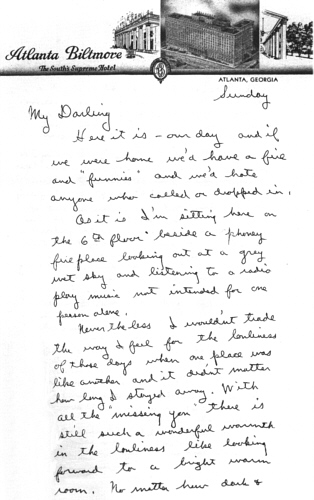 Atlanta Biltmore
The South's Supreme Hotel
ATLANTA, GEORGIA
Sunday
My Darling
Here it is – our day and if
we were home we'd have a fire
and "funnies" and we'd hate
anyone who called or dropped in.
As it is I'm sitting here on
the 6th floor beside a phoney
fire place looking out at a grey
wet sky and listening to a radio
play music not intended for one
person alone.
Never the less I wouldn't trade
the way I feel for the lonliness
of those days when one place was
like another and it didn't matter
how long I stayed away. With
all the "missing you" there is
still such a wonderful warmth
in the lonliness like looking
forward to a bright warm
room. No matter how dark &